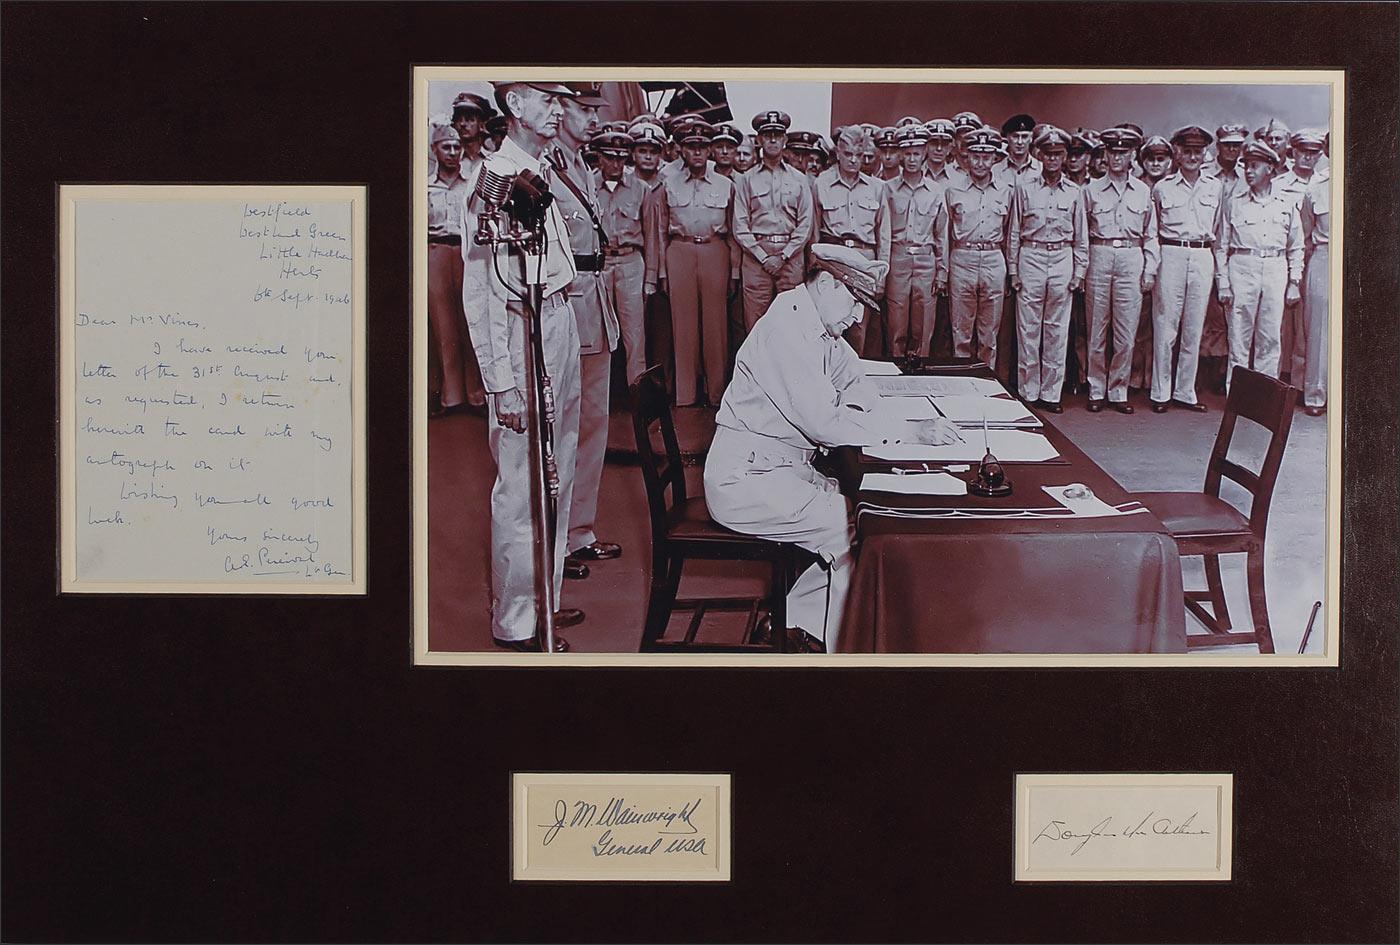 Westfield
Westland Green
Little Hadham
Herts
6th Sept. 1946
Dear Mr. Vines,
I have received your
letter of the 31st August and,
as requested, I return
herewith the card with my
autograph on it.
Wishing you all good
luck.
Yours sincerely
A.E. Percival
Lt Gen
J. M. Wainwright
General USA
Douglas MacArthur